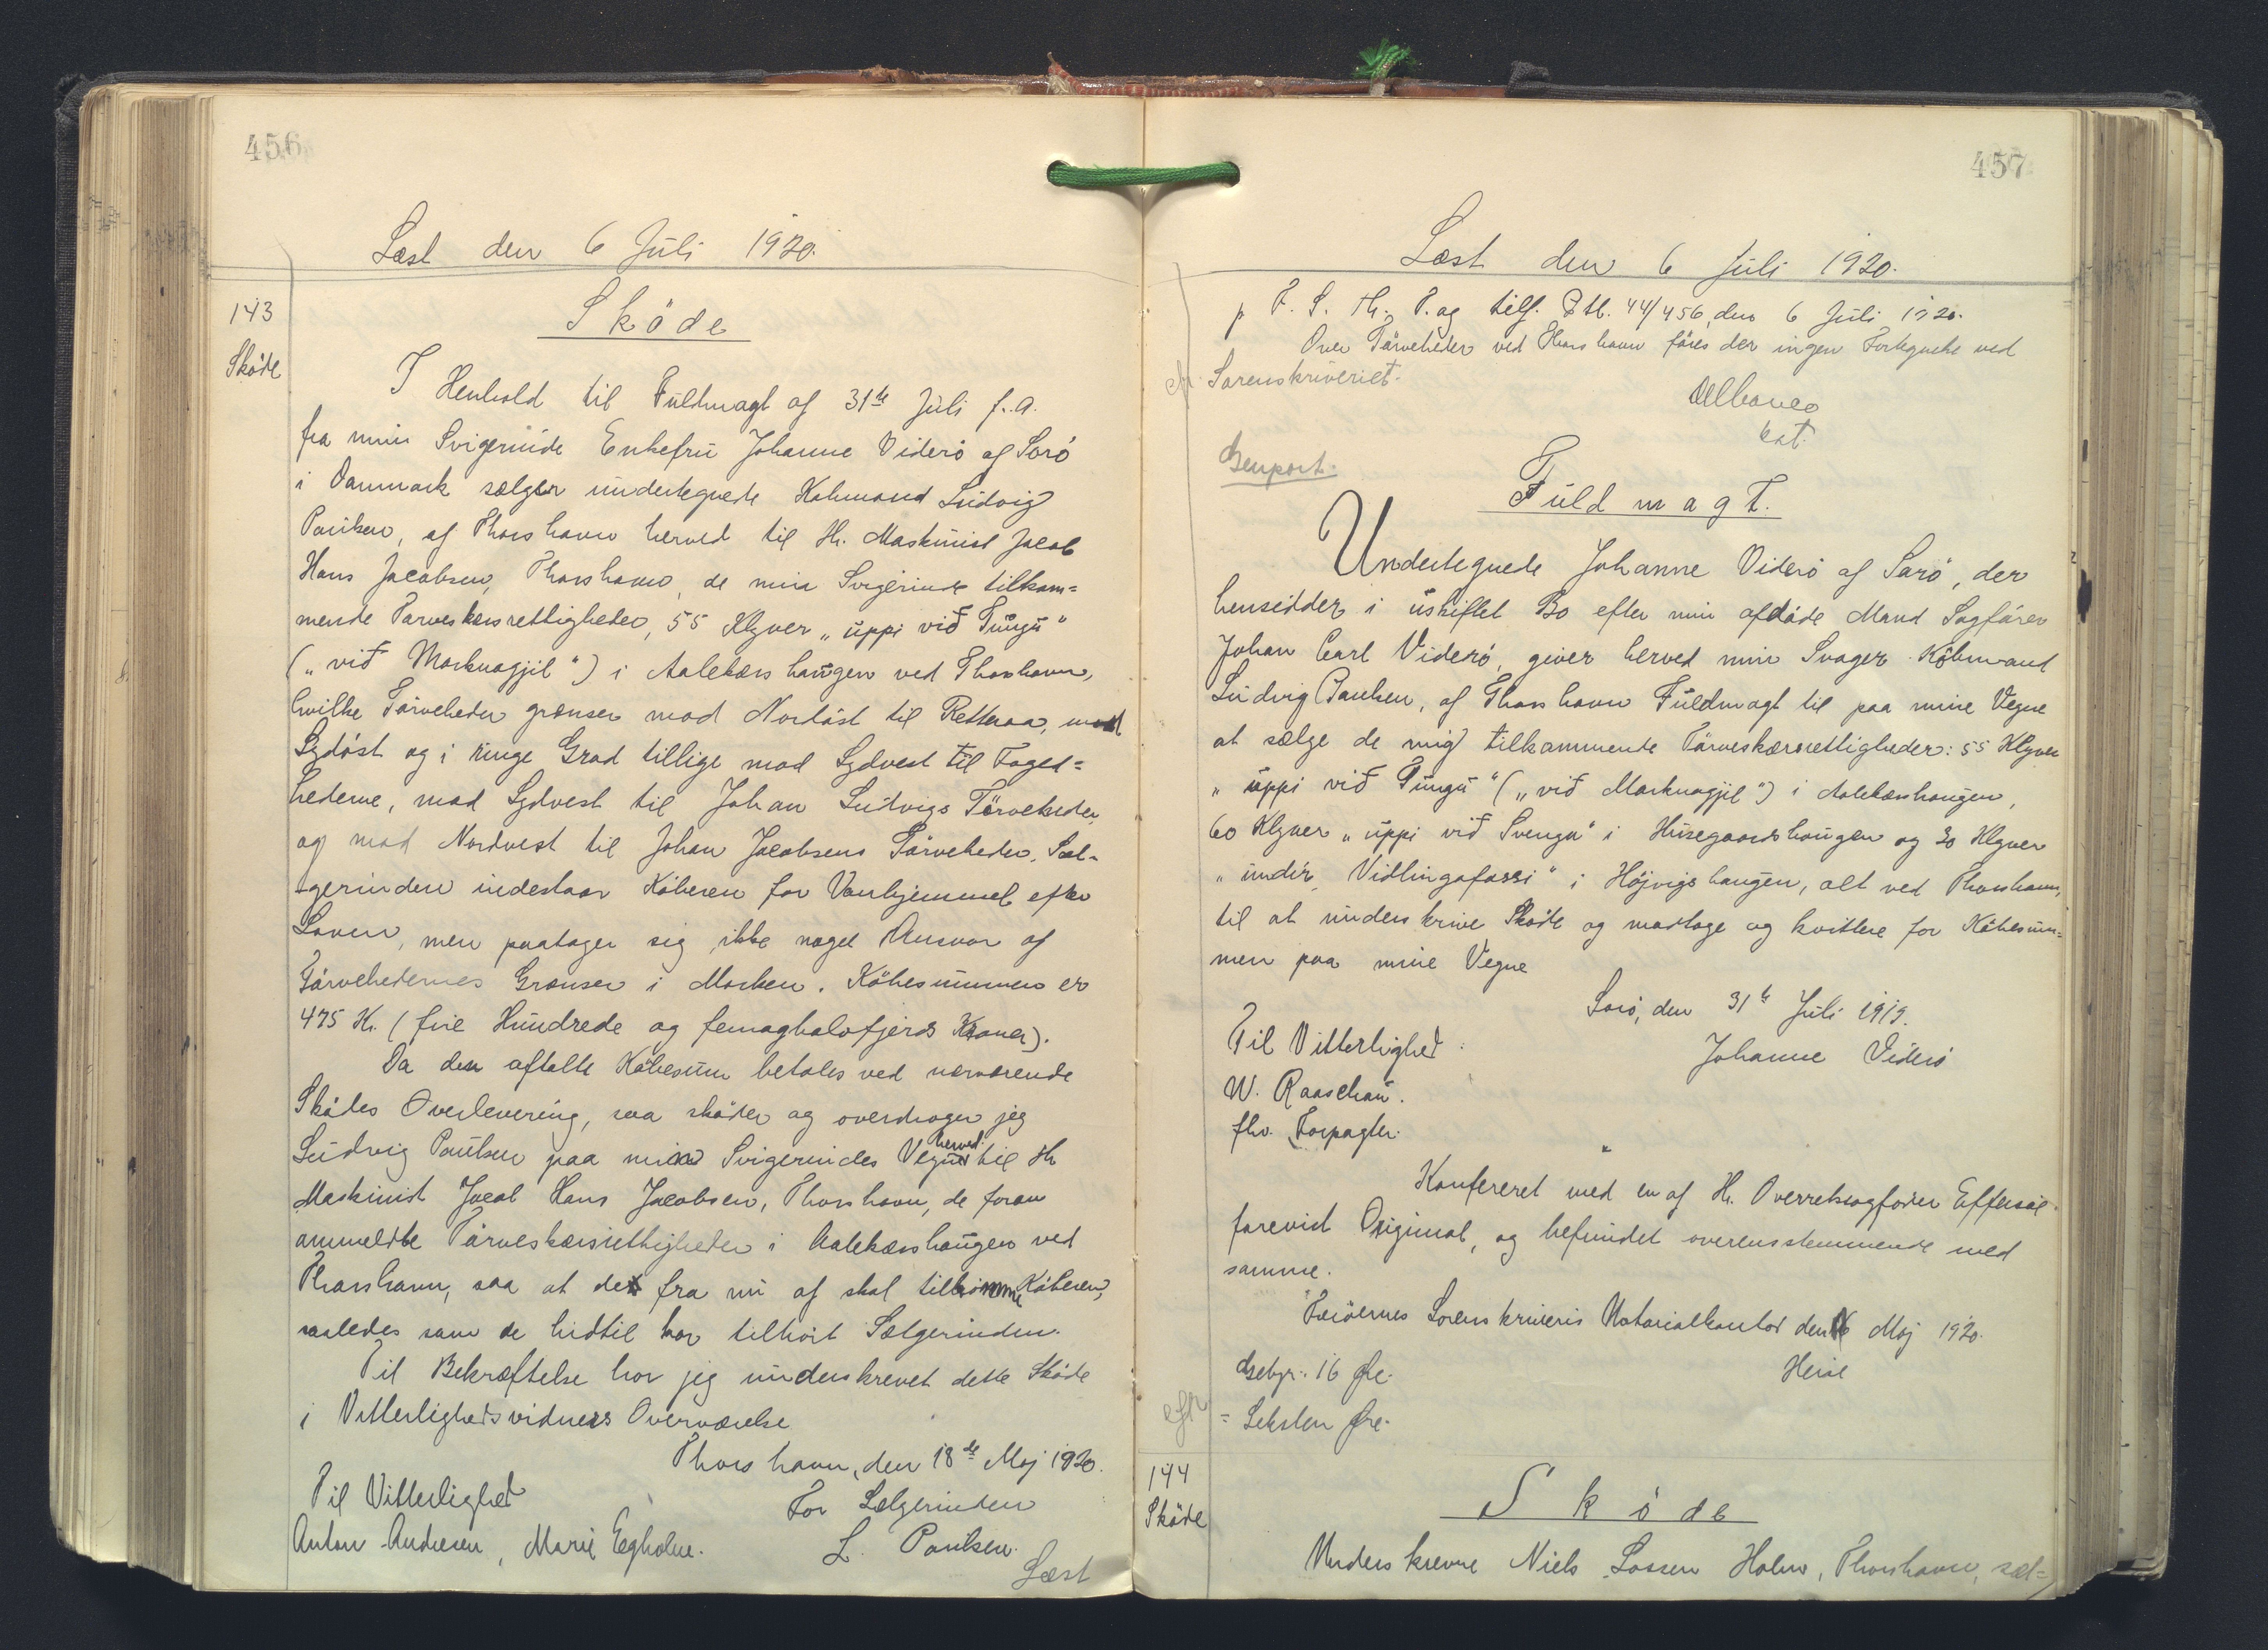 456
Læst den 6 Juli 1920.
143
Sköde
Sköde
I Henhold til Fuldmagt af 31te Juli f. A.
fra min Svigerinde Enkefru Johanne Viderö af Sorö
i Danmark sælger undertegnede Købmand Ludvig
Poulsen, af Thorshavn herved til Hr. Maskinist Jacob
Hans Jacobsen, Thorshavn, de min Svigerinde tilkom=
mende Törveskærsrettigheder, 55 Klyver „uppi við Tungu"
(„við Marknagjil") i Aalekærshaugen ved Thorshavn,
hvilke Törveheder grænser mod Nordöst til Retteraa, mod
Sydöst og i ringe Grad tillige mod Sydvest til Foged=
hederne, mod Sydvest til Johan Ludvigs Törveheder,
og mod Nordvest til Johan Jacobsens Törveheder. Sæl-
gerinden indestaar Köberen for Vanhjemmel efter
Loven, men paatager sig ikke noget Ansvar af
Törvehedernes Grænser i Marken. Köbesummen er
475 Kr. (fire Hundrede og femoghalvfjerds Kroner).
Da den aftalte Köbesum betales ved nærværende
Sködes Overlevering, saa sköder og overdrager jeg
Ludvig Poulsen paa min Svigerindes Vegne herved til Hr
Maskinist Jacob Hans Jacobsen, Thorshavn, de foran
ommeldte Törveskærsrettigheder i Aalekærshaugen ved
Thorshavn, saa at de fra nu af skal tilkomme Köberen,
saaledes som de hidtil har tilhört Sælgerinden.
Til Bekræftelse har jeg underskrevet dette Sköde
i Vitterlighedsvidners Overværelse
Thorshavn, den 18de Maj 1920.
Til Vitterlighed
For Sælgerinden
Anton Andresen, Marie Egholm.
L. Poulsen.
Læst
457
Læst den 6 Juli 1920.
p F. S. Th. P. og tilf. Ptl. 44/456, den 6 Juli 1920.
Over Törveheder ved Thorshavn föres der ingen Fortegnelse ved
Sorenskriveriet.
kst.
Genpart.
Fuldmagt.
Undertegnede Johanne Viderö af Sorö, der
hensidder i uskiftet Bo efter min afdöde Mand Sagförer
Johan Carl Viderö, giver herved min Svager Köbmand
Ludvig Poulsen, af Thorshavn Fuldmagt til paa mine Vegne
at sælge de mig tilkommende Törveskærsrettigheder: 55 Klyver
„uppi við Tungu" („við Marknagjil") i Aalekærshaugen,
60 Klyver „uppi við Svenga" i Husegaardshaugen og 30 Klyver
„undir Vidlingafossi" i Höjvigshaugen, alt ved Thorshavn,
til at underskrive Sköde og modtage og kvittere for Köbesum=
men paa mine Vegne
Sorö, den 31te Juli 1919.
Til Vitterlighed:
Johanne Viderö
W. Raaschau.
fhv. Forpagter.
Konfereret med en af Hr. Overretssagförer Effersöe
forevist Original, og befundet overensstemmende med
samme.
Færöernes Sorenskriveris Notarialkontor den Maj 1920.
Gebyr: 16 Øre.
Heise
= Seksten Øre.
144
Sköde
Sköde
Underskrevne Niels Lassen Holm, Thorshavn, sæl=